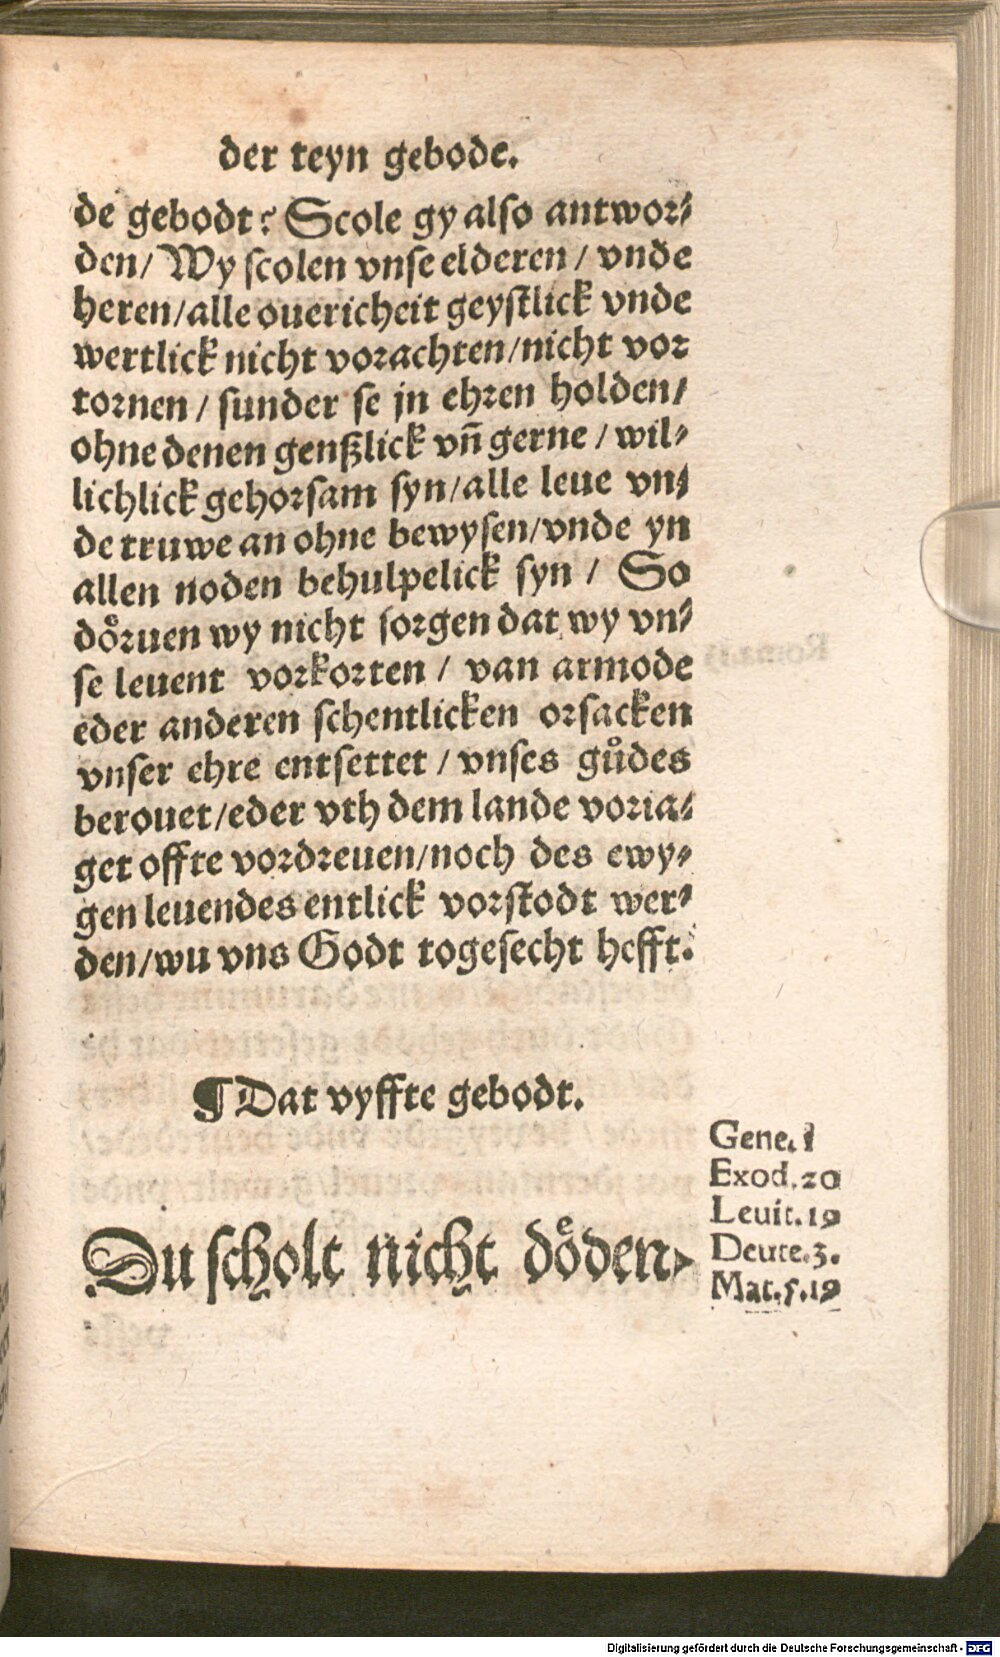 der teyn gebode.
de gebodt? Scole gy also antwor⸗
den/ Wy scolen vnse elderen / vnde
heren/alle ouericheit geystlick vnde
wertlick nicht vorachten/nicht vor
tornen / sunder se jn ehren holden/
ohne denen genßlick vñ gerne / wil⸗
lichlick gehorsam syn/alle leue vn⸗
de truwe an ohne bewysen/vnde yn
allen noden behulpelick syn / So
doͤruen wy nicht sorgen dat wy vn⸗
se leuent vorkorten / van armode
eder anderen schentlicken orsacken
vnser ehre entsettet / vnses guͦdes
berouet/eder vth dem lande voria⸗
get offte vordreuen/noch des ewy⸗
gen leuendes entlick vorstodt wer⸗
den/wu vns Godt togesecht hefft.
¶ Dat vyffte gebodt.
Du scholt nicht doͤden.
Gene. 1
Exod. 20
Leuit. 19
Deute. 3.
Mat. 5. 19
Digitalisierung gefördert durch die Deutsche Forschungsgemeinschaft - DFG